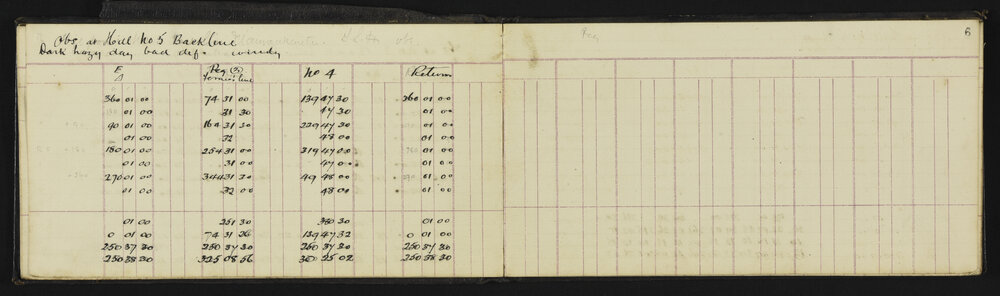 6
Obs at Hill No 5 Back line
Dark hazy day bad def. windy
E Δ Peg (3) Termin line No 4 Return
360 01 00 74 31 00 139 47 30 360 01 00
01 00 31 30 47 30 01 00
90 01 00 164 31 30 229 47 30 01 00
01 00 32 48 00 01 00
180 01 00 254 31 00 319 47 00 01 00
01 00 31 00 47 00 01 00
270 01 00 344 31 30 49 48 00 01 00
01 00 32 00 48 00 01 00
01 00 251 30 380 30 01 00
0 01 00 74 31 26 139 47 32 0 01 00
250 37 30 250 37 30 250 37 30 250 37 30
250 38 30 325 08 56 30 25 02 250 38 30